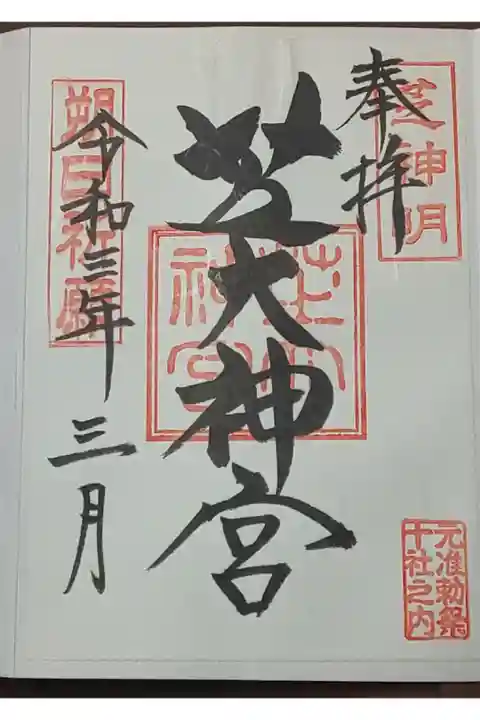 奉拝
芝神明
芝大神宮
令和三年三月
朔日祈願
元准勅祭
十社之内